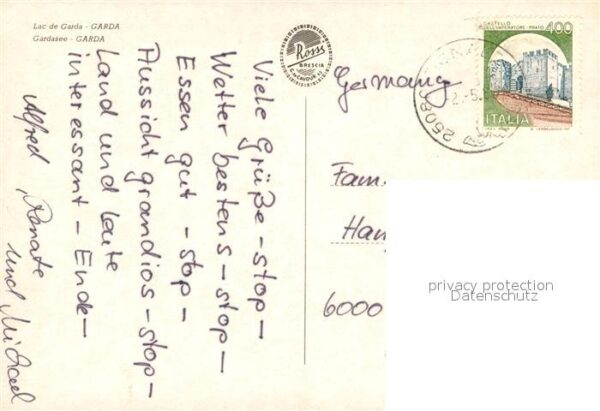 Lac de Garda - GARDA
Gardasee - GARDA
Viele Grüße - stop -
Wetter bestens - stop -
Essen gut - stop -
Aussicht grandios - stop -
Land und Leute
interessant - Ende -
Alfred, Renate
und Michael
Rossi
BRESCIA
Germany
Fam.
Han
6000
CASTELLO
DELL'IMPERATORE - PRATO
400
ITALIA
25083
privacy protection
Datenschutz